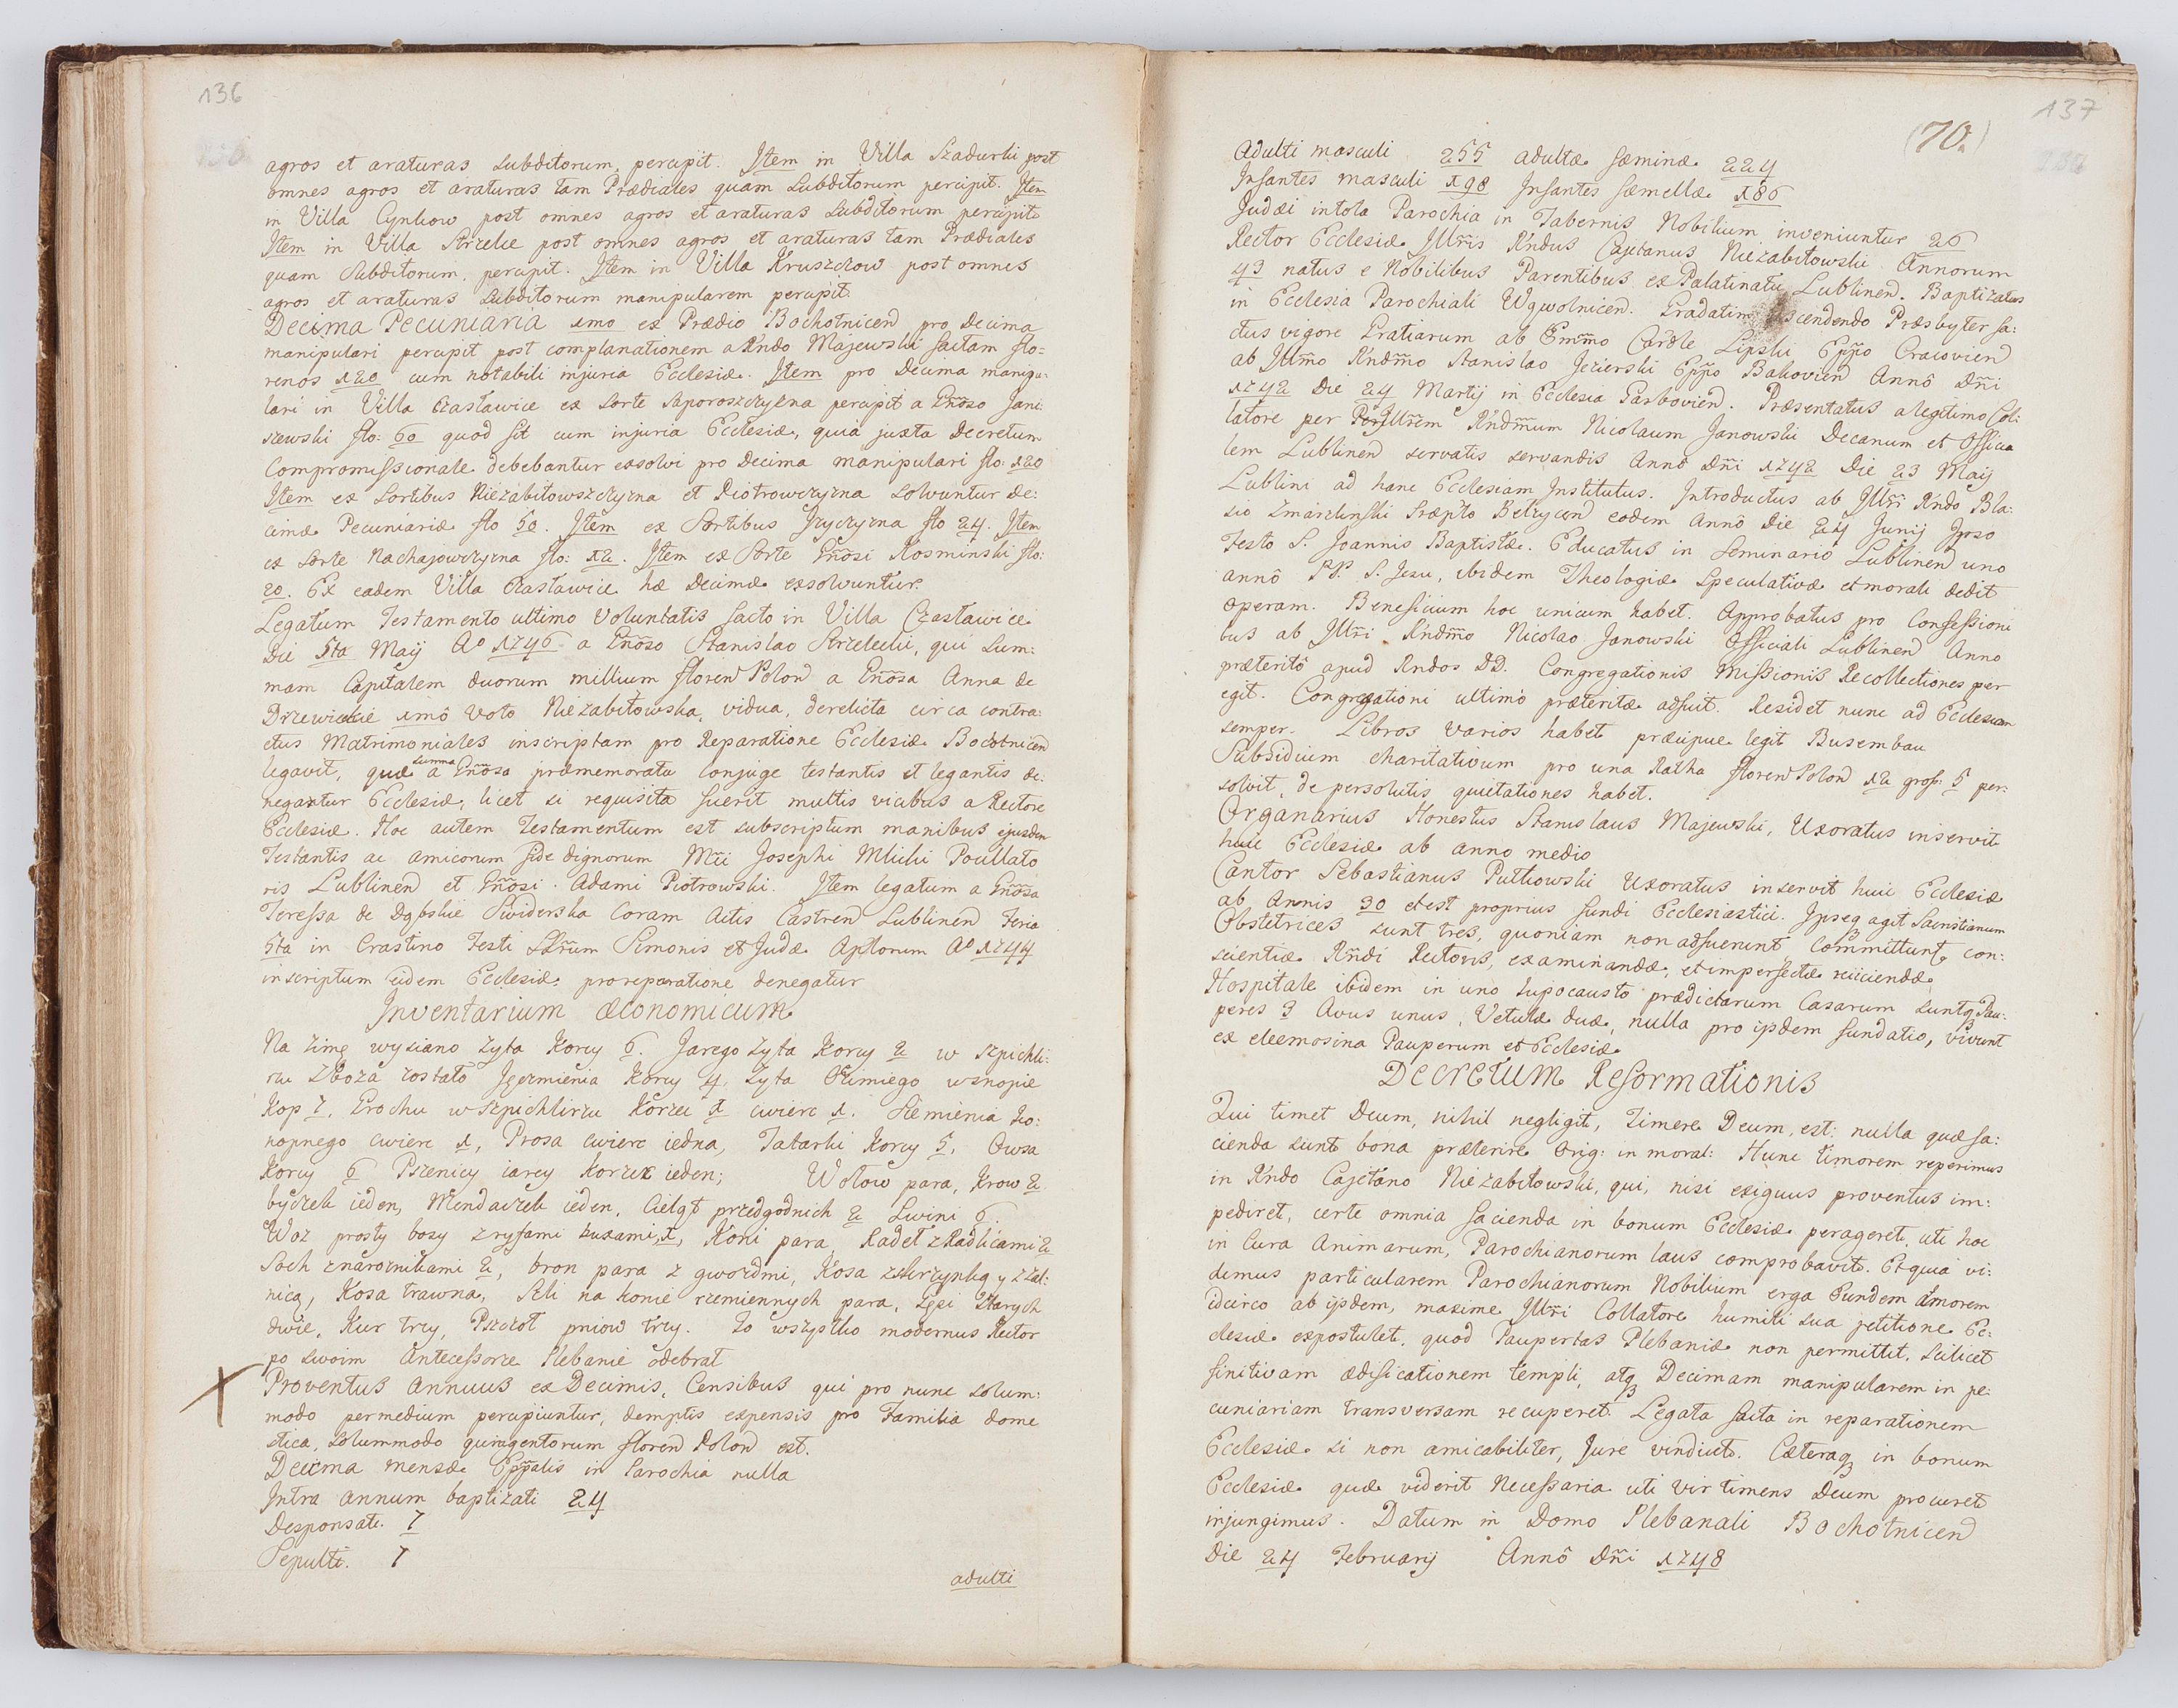 136
agros et araturas subditorum, percipit. Item in Villa Szadurki post
omnes agros et araturas tam Prædiales quam subditorum percipit. Item
in Villa Cynkow post omnes agros et araturas subditorum percipit
Item in Villa Strzelce post omnes agros et araturas tam Prædiales
quam subditorum, percipit. Item in Villa Kruszczow post omnes
agros et araturas subditorum manipularem percipit.
Decima Pecuniaria 1mo ex Prædio Bochotnicen pro Decima
manipulari percipit post complanationem a Rndo Majewski factam flo:
renos 120 cum notabili injuria Ecclesiæ. Item pro Decima manipu:
lari in Villa Czasławice ex sorte Saporoszczyzna percipit a Gnoso Jani:
szewski flo: 60 quod fit cum injuria Ecclesiæ, quia juxta Decretum
Compromissionale debebantur exsolvi pro Decima manipulari flo: 120
Item ex Sortibus Niezabitowszczyzna et Piotrowczyzna solvuntur de:
cimæ Pecuniariæ flo 50. Item ex Sortibus Jzyczyzna flo 24. Item
ex sorte Nachajowczyzna flo: 12. Item ex Sorte Gnosi Kosminski flo:
20. Ex eadem Villa Czasławice hæ Decimæ exsolvuntur.
Legatum Testamento ultimo Voluntatis facto in Villa Czasławice
Die 5ta Maij Ao 1746 a Gnoso Stanislao Strzelecki, qui sum:
mam Capitalem duorum millium floren Polon a Gnosa Anna de
Drzewickie 1mo Voto Niezabitowska, vidua, derelicta circa contra:
ctus Matrimoniales inscriptam pro Reparatione Ecclesiæ Bochotnicen
legavit, quæ summa a Gnosa præmemorata conjuge testantis et legantis de:
negantur Ecclesiæ, licet si requisita fuerit multis vicibus a Rectore
Ecclesiæ. Hoc autem Testamentum est subscriptum manibus ejusdem
Testantis ac amicorum fide dignorum Mci Josephi Mlicki Poullato
ris Lublinen et Gnosi Adami Piotrowski. Item legatum a Gnosa
Teressa de Dąbskie Swiderska Coram Actis Castren Lublinen Feria
5ta in Crastino Festi SSrum Simonis et Judæ Aplorum Ao 1744
inscriptum eidem Ecclesiæ pro reparatione denegatur
Inventarium æconomicum
Na zimę wysiano żyta Korcy 6. Jarego żyta Korcy 2 w szpichli:
rzu Zboza zostało Jęczmienia Korcy 4. żyta Ozimiego w snopie
Kop 7. Grochu w szpichlirzu Korzec 1 cwierc 1. Siemienia ko:
nopnego cwierc 1, Prosa cwierc iedna, Tatarki Korcy 5. Owsa
Korcy 6 Pszenicy iarey Korzec ieden; Wołow para, Krow 2
byczek ieden, Mendaczek ieden, Cieląt przedgodnich 2 Swini 6
Woz prosty bosy z ryfami kuzami, 1, Koni para, Radeł z Radlicami 2
Soch z naroznikami 2, bron para z gwozdmi, Kosa z skrzynką y z żel:
nicą, Kosa trawna, Szli na konie rzemiennych para, Gęsi Starych
dwie, Kur trzy, Pszczoł pniow trzy. To wszystko modernus Rector
po swoim Antecessorze Plebanie odebrał
Proventus annuus ex Decimis, Censibus qui pro nunc solum:
modo per medium percipiuntur, demptis expensis pro Familia dome
stica, solummodo quingentorum floren Polon est.
Decima mensæ Eppalis in Parochia nulla
Intra annum baptizati 24
Desponsati 7
Sepulti. 7
adulti
137
(70.)
Adulti masculi 255 adultæ fæminæ 224
Infantes masculi 198 Infantes fæmellæ 186
Judæi in tota Parochia in Tabernis Nobilium inveniuntur 26
Rector Ecclesiæ Jllris Rndus Cajetanus Niezabitowski Annorum
43 natus e Nobilibus Parentibus ex Palatinatu Lublinen. Baptizatus
in Ecclesia Parochiali Wąwolnicen. Gradatim ascendendo Præsbyter fa:
ctus vigore Gratiarum ab Emmo Cardle Lipski Eppo Cracovien
ab Jllmo Rndmo Stanislao Jezierski Eppo Bakovien Anno Dni
1742 Die 24 Martij in Ecclesia Garbovien. Præsentatus a legitimo Col:
latore per PerJllrem Rndmum Nicolaum Janowski Decanum et Officia
lem Lublinen servatis servandis Anno Dni 1742 Die 23 Maij
Lublini ad hanc Ecclesiam Institutus. Introductus ab Jllri Rndo Bla:
sio Zmarzlinski Præpto Bełzycen eodem Anno Die 24 Junij Ipso
Festo S. Joannis Baptistæ. Educatus in Seminario Lublinen uno
anno PP. S. Jesu, ibidem Theologiæ Speculativæ et morali dedit
operam. Beneficium hoc unicum habet. Approbatus pro Confessioni
bus ab Jllri Rndmo Nicolao Janowski Officiali Lublinen Anno
præterito apud Rndos DD. Congregationis Missionis Recollectiones per
egit. Congregationi ultimo præteritæ adfuit. Residet nunc ad Ecclesiam
semper. Libros varios habet præcipue legit Busembau
Subsidium charitativum pro una Ratha floren Polon 12 gross: 5 per:
solvit, de persolutis quietationes habet.
Organarius Honestus Stanislaus Majewski, Uxoratus inservit
huic Ecclesiæ ab anno medio
Cantor Sebastianus Putkowski Uxoratus inservit huic Ecclesiæ
ab Annis 30 et est proprius fundi Ecclesiastici. Ipseq agit Sacristianum
Obstetrices sunt tres, quoniam non adfuerunt Committunt con:
scientiæ Rndi Rectoris, examinandæ, et imperfectæ reiiciendæ.
Hospitale ibidem in uno hypocausto prædictarum Casarum suntq Pau:
peres 3 Avus unus, Vetulæ duæ, nulla pro ijsdem fundatio, vivunt
ex eleemosina Pauperum et Ecclesiæ
Decretum Reformationis
Qui timet Deum, nihil negligit, Timere Deum, est: nulla quæ fa:
cienda sunt bona præterire Orig: in moral: Hunc timorem reperimus
in Rndo Cajetano Niezabitowski, qui, nisi exiguus proventus im:
pediret, certe omnia facienda in bonum Ecclesiæ perageret, uti hoc
in Cura Animarum, Parochianorum laus comprobavit. Et quia vi:
demus particularem Parochianorum Nobilium erga Eundem Amorem
idcirco ab ijsdem, maxime Jllri Collatore humili sua petitione Ec:
clesiæ expostulet, quod Paupertas Plebaniæ non permittit, scilicet
finitivam ædificationem templi, atq Decimam manipularem in pe:
cuniariam transversam recuperet. Legata facta in reparationem
Ecclesiæ si non amicabiliter, Jure vindicet. Cæteraq in bonum
Ecclesiæ quæ viderit Necessaria uti vir timens Deum procuret
injungimus. Datum in Domo Plebanali Bochotnicen
Die 24 Februarij Anno Dni 1748